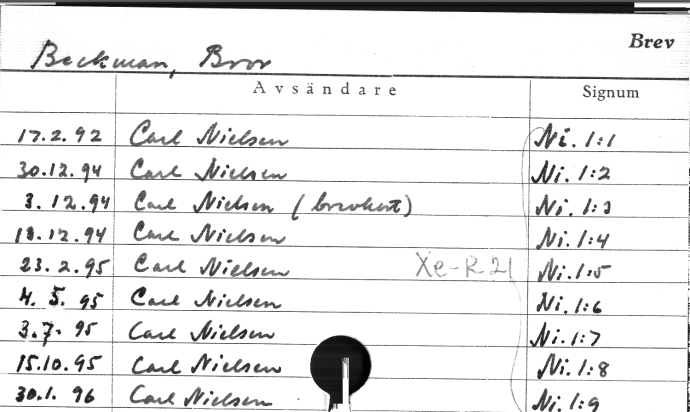 Brev
Beckman, Bror
Avsändare Signum
17.2.92 Carl Nielsen Ni. 1:1
30.12.94 Carl Nielsen Ni. 1:2
3.12.94 Carl Nielsen (brevkort) Ni. 1:3
Carl Nielsen Ni. 1:4
23.2.95 Carl Nielsen Xe-R 21 Ni. 1:5
4.5.95 Carl Nielsen Ni. 1:6
3.7.95 Carl Nielsen Ni. 1:7
15.10.95 Carl Nielsen Ni. 1:8
30.1.96 Carl Nielsen Ni. 1:9